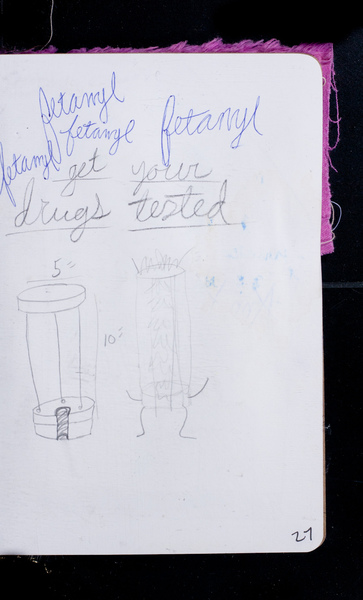 fetanyl
fetanyl fetanyl
fetanyl
get your
drugs tested
5"
10"
27